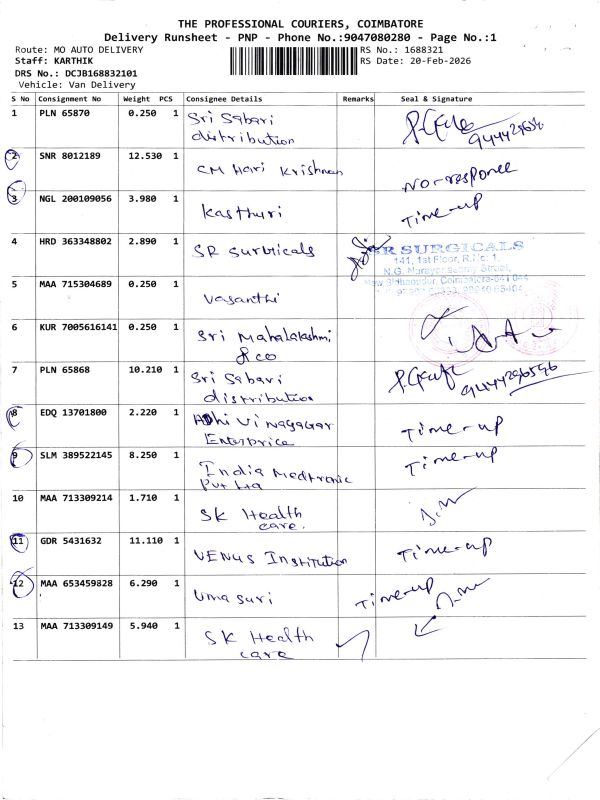 THE PROFESSIONAL COURIERS, COIMBATORE
Delivery Runsheet - PNP - Phone No.:9047080280 - Page No.:1
Route: MO AUTO DELIVERY RS No.: 1688321
Staff: KARTHIK RS Date: 20-Feb-2026
DRS No.: DCJB168832101
Vehicle: Van Delivery
S No Consignment No Weight PCS Consignee Details Remarks Seal & Signature
1 PLN 65870 0.250 1 Sri Sabari
distribution
2 SNR 8012189 12.530 1 CM Hari Krishnan No-responce
3 NGL 200109056 3.980 1 Kasthuri Time-up
4 HRD 363348802 2.890 1 SR Surbticals SR SURGICALS
141, 1st Floor, R.No: 1,
5 MAA 715304689 0.250 1 Vasanthi
6 KUR 7005616141 0.250 1 Sri Mahalakshmi
& co
7 PLN 65868 10.210 1 Sri Sabari
distribution 9444296596
8 EDQ 13701800 2.220 1 Adhi Vinagagar
Enterprice Time-up
9 SLM 389522145 8.250 1 India Medtronic
Pvt Ltd Time-up
10 MAA 713309214 1.710 1 SK Health
care.
11 GDR 5431632 11.110 1 VENUS Institution Time-up
12 MAA 653459828 6.290 1 Umasuri Time-up
13 MAA 713309149 5.940 1 SK Health
care